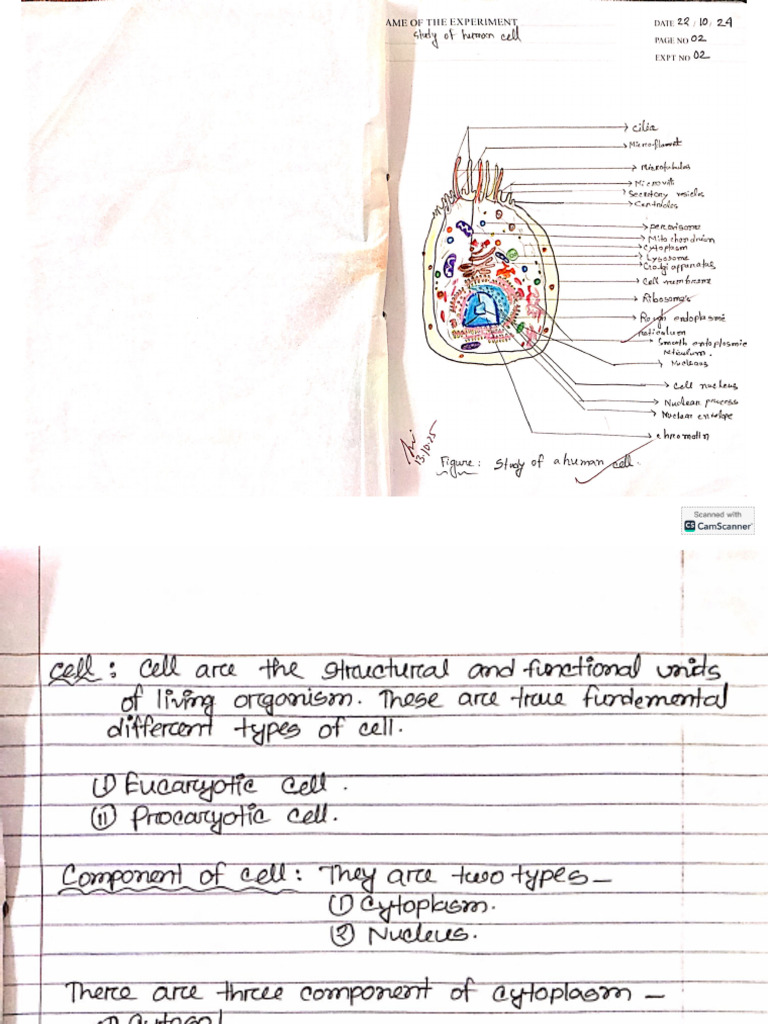 AME OF THE EXPERIMENT
Study of human cell
DATE 22 / 10 / 24
PAGE NO 02
EXPT NO 02
cilia
Microfilament
Microtubulas
Microvili
Secretory vesicles
Centrioles
peroxisome
Mitochondrium
Cytoplasm
Lysosome
Goldgi apparatas
Cell membrane
Ribosomes
Rough endoplasmic
reticulum
Smooth endoplasmic
reticulum.
Nucleous
Cell nucleus
Nuclear process
Nuclear envelope
chromatin
13.10.25
Figure: Study of a human cell.
Scanned with
CS CamScanner
cell : Cell are the structural and functional units
of living organism. These are true fundemental
different types of cell.
(i) Eucaryotic cell .
(ii) Procaryotic cell.
Component of cell : They are two types —
(1) Cytoplasm.
(২) Nucleus.
There are three component of cytoplasm —